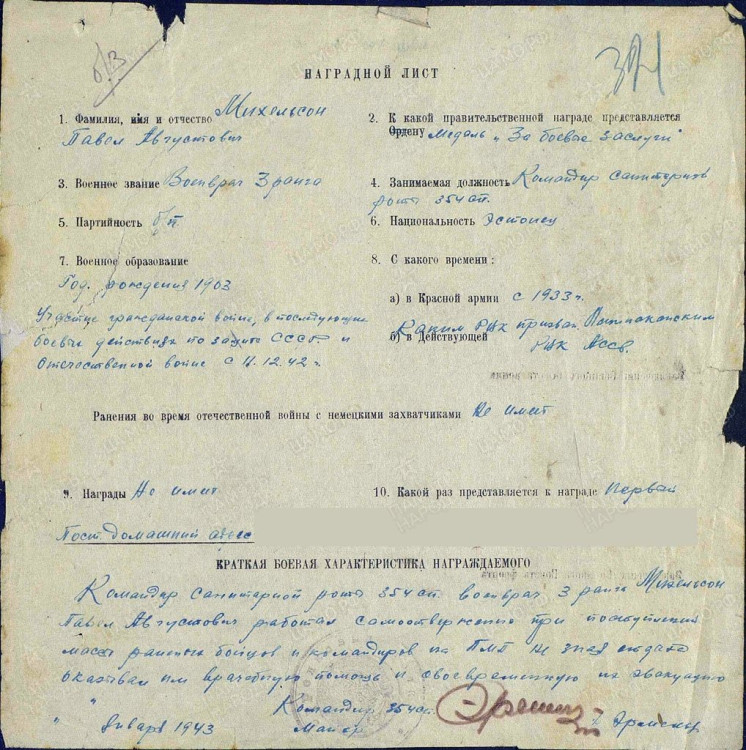 НАГРАДНОЙ ЛИСТ
1. Фамилия, имя и отчество Михельсон
Павел Августович
2. К какой правительственной награде представляется
Ордену Медаль „За боевые заслуги"
3. Военное звание Военврач 3 ранга
4. Занимаемая должность Командир санитарной
роты 354 сп.
5. Партийность б/п.
6. Национальность Эстонец
7. Военное образование
Год. рождения 1903
8. С какого времени:
а) в Красной армии с 1933 г.
Участие гражданской войне, в последующих
боевых действиях по защите СССР и
Отечественной войне с 11.12.42 г.
Каким РВК призван
б) в Действующей
РВК
Ранения во время отечественной войны с немецкими захватчиками Не имеет
9. Награды Не имеет
10. Какой раз представляется к награде Первый
Пост. Домашний адрес
КРАТКАЯ БОЕВАЯ ХАРАКТЕРИСТИКА НАГРАЖДАЕМОГО
Командир санитарной роты 354 сп. военврач 3 ранга Михельсон
Павел Августович работал самоотверженно при поступлении
массы раненых бойцов и командиров на ПМП не зная отдыха
оказывал им врачебную помощь и своевременную их эвакуацию
Командир 354 сп.
" " Января 1943 Майор